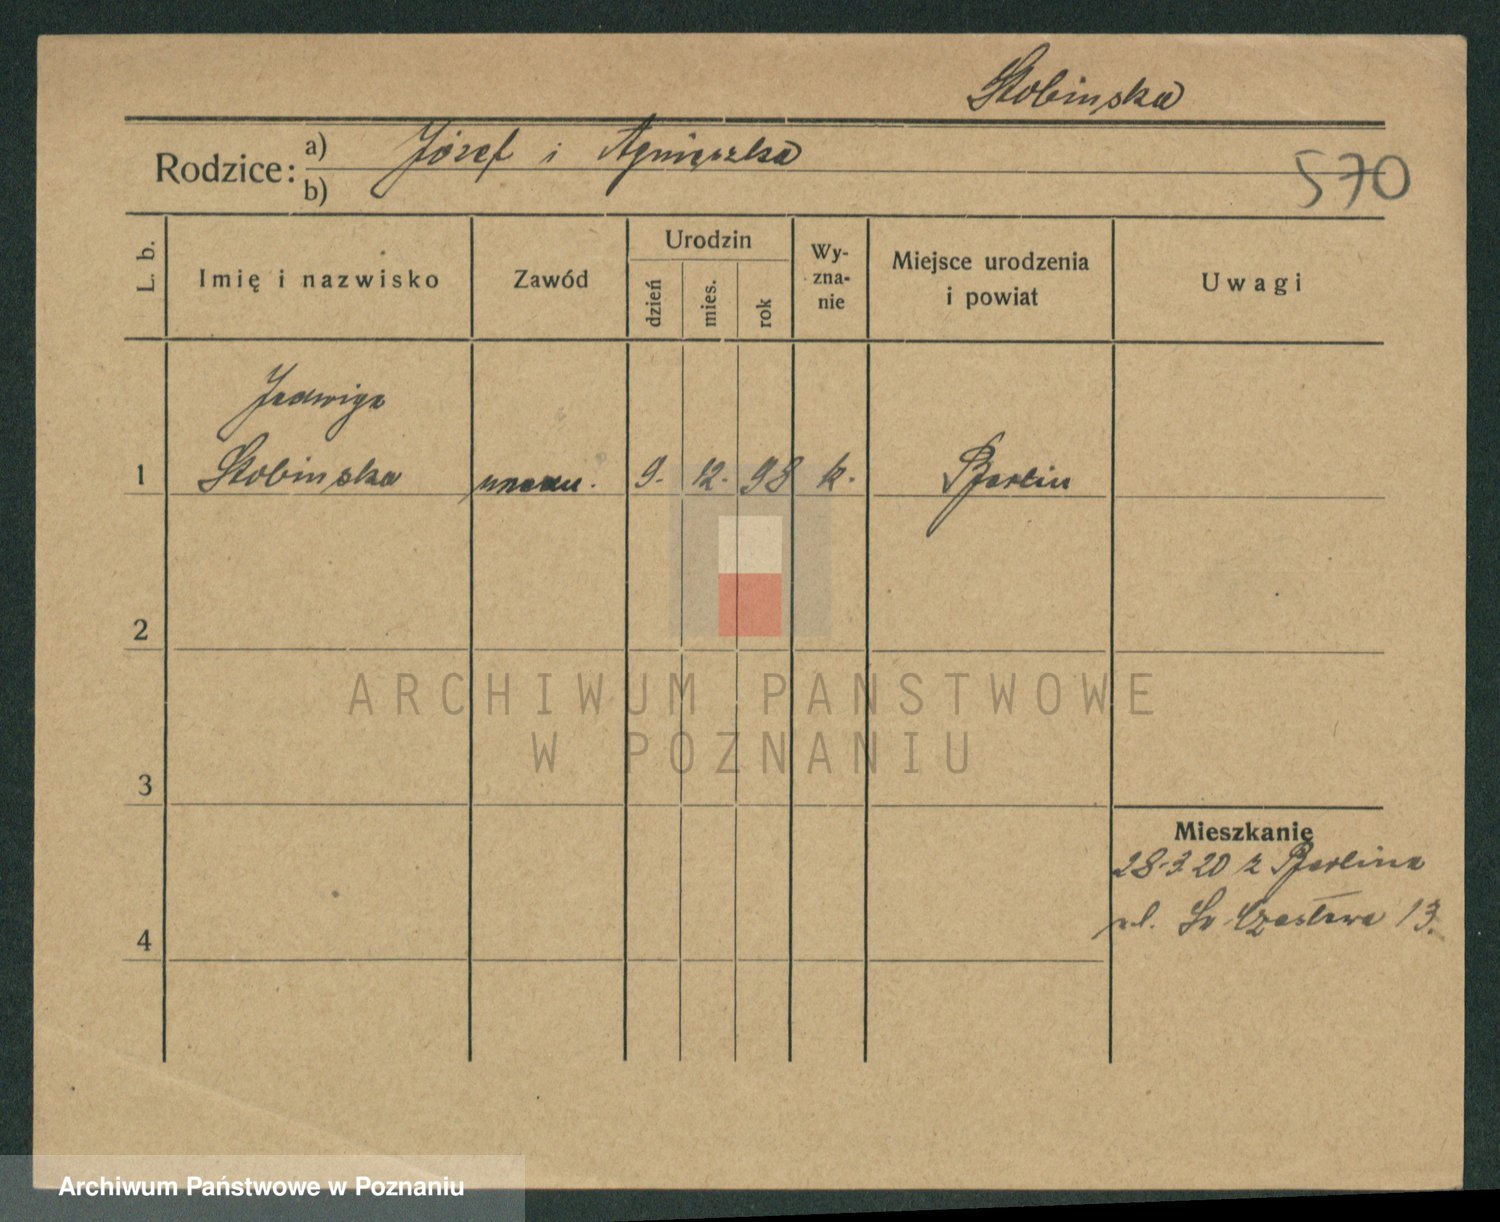 Stobinska
Rodzice: a) Józef i Agnieszka
b)
570
L. b.
Imię i nazwisko
Zawód
Urodzin
dzień
mies.
rok
Wy-
zna-
nie
Miejsce urodzenia
i powiat
Uwagi
Jadwiga
1 Stobinska 9. 12. 98 k. Berlin
2
ARCHIWUM PAŃSTWOWE
W POZNANIU
3
Mieszkanie
28.3.20 z Berlina
4 ul. Św Czesława 13.
Archiwum Państwowe w Poznaniu